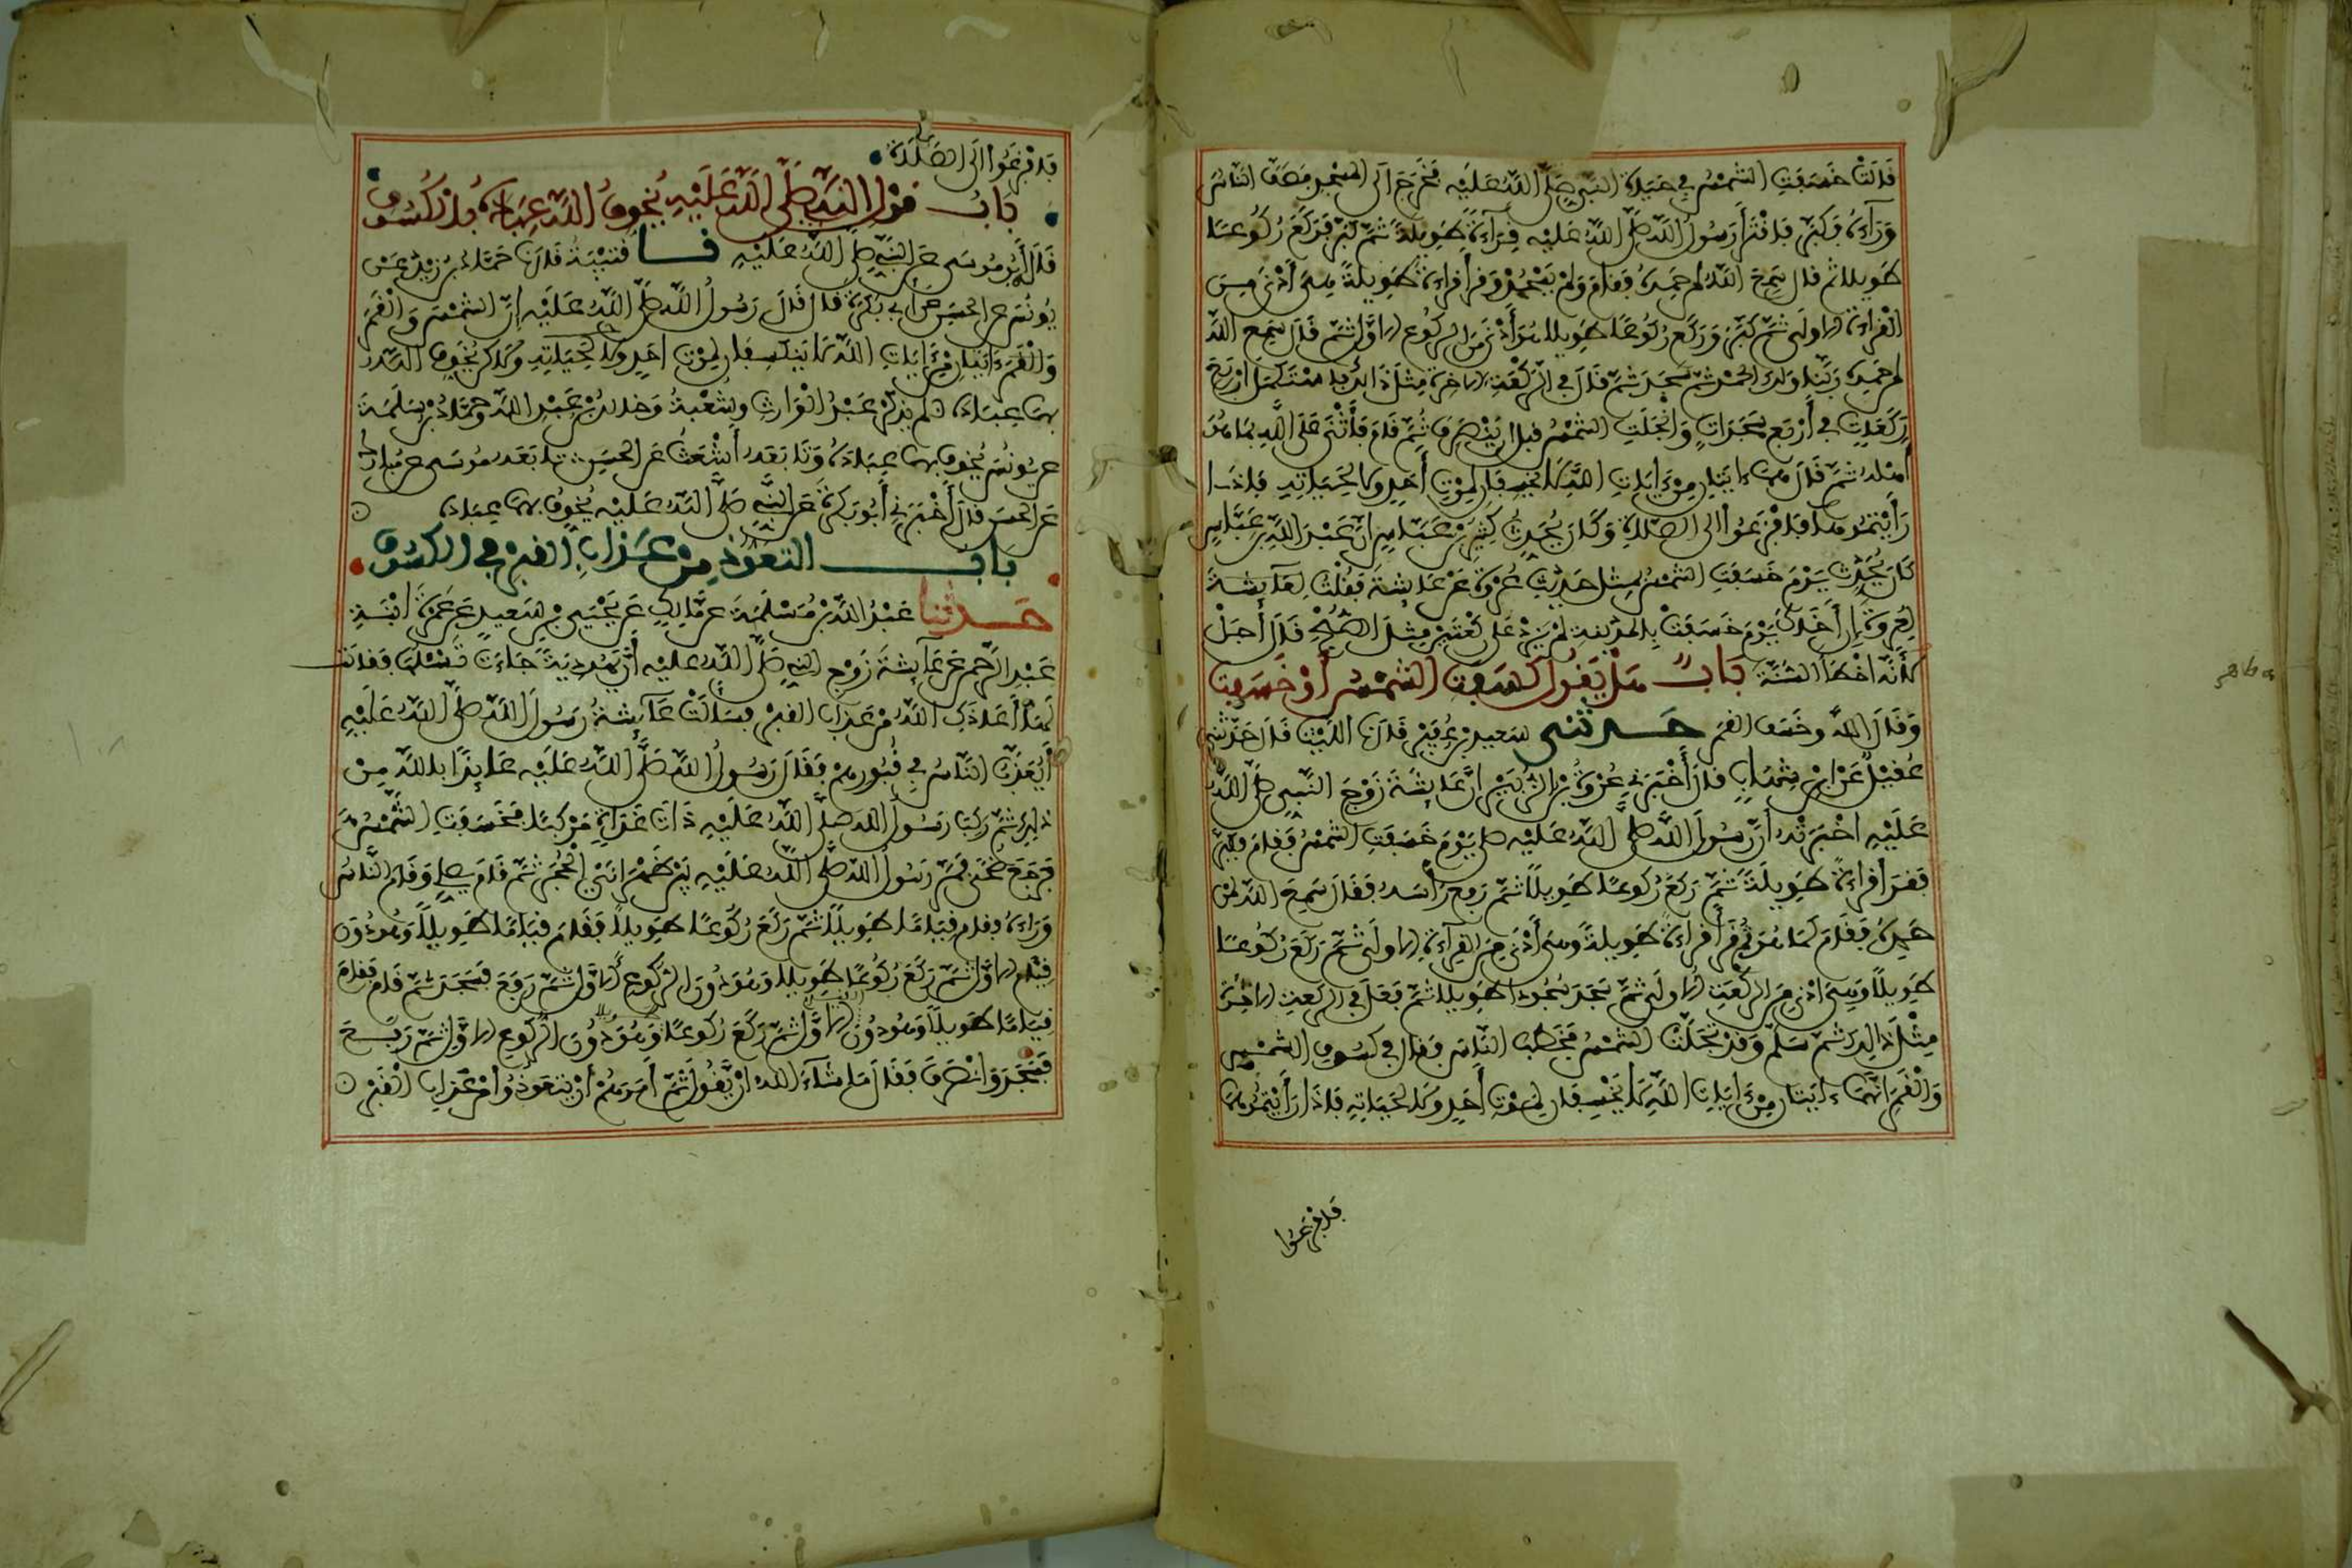 قَالَتْ خَسَفَتِ الشَّمْسُ فِي حَيَاةِ النَّبِيِّ صَلَّى اللَّهُ عَلَيْهِ فَخَرَجَ إِلَى الْمَسْجِدِ فَصَفَّ النَّاسُ
وَرَاءَهُ فَكَبَّرَ فَاقْتَرَأَ رَسُولُ اللَّهِ صَلَّى اللَّهُ عَلَيْهِ قِرَاءَةً طَوِيلَةً ثُمَّ كَبَّرَ فَرَكَعَ رُكُوعًا
طَوِيلا ثم قال سَمِعَ اللَّهُ لمن حَمِدَهُ فَقَامَ وَلَمْ يَسْجُدْ وَقَرَأَ قِرَاءَةً طَوِيلَةً هِيَ أَدْنَى مِنَ
الْقِرَاءَةِ الاولَى ثُمَّ كَبَّرَ وَرَكَعَ رُكُوعًا طَوِيلا هُوَ أَدْنَى مِنَ الرُّكُوعِ الاوَّلِ ثُمَّ قَالَ سَمِعَ اللَّهُ
لمن حَمِدَهُ رَبَّنَا وَلَكَ الْحَمْدُ ثُمَّ سَجَدَ ثُمَّ قَالَ فِي الرَّكْعَةِ الاخِرَةِ مِثْلَ ذَلِكَ فَاسْتَكْمَلَ أَرْبَعَ
رَكَعَاتٍ فِي أَرْبَعِ سَجَدَاتٍ وَانْجَلَتِ الشَّمْسُ قبل ان يَنْصَرِفَ ثُمَّ قَامَ فَأَثْنَى عَلَى اللَّهِ بِمَا هُوَ
أهله ثُمَّ قَالَ هما ءايَتَانِ مِنْ ءَايَاتِ اللَّهِ لا يَخْسِفَانِ لِمَوْتِ أَحَدٍ وَلا لِحَيَاتِهِ فَإِذَا
رَأَيْتُمُوهما فَافْزَعُوا إلى الصَّلاةِ وَكَانَ يُحَدِّثُ كَثِيرُ بْنُ عَبَّاسٍ أَنَّ عَبْدَ اللَّهِ بْنَ عَبَّاسٍ
كَانَ يُحَدِّثُ يَوْمَ خَسَفَتِ الشَّمْسُ بِمِثْلِ حَدِيثِ عُرْوَةَ عَنْ عَائِشَةَ فَقُلْتُ
لِعُرْوَةَ إِنَّ أَخَاكَ يَوْمَ خَسَفَتْ بِالْمَدِينَةِ لَمْ يَزِدْ عَلَى رَكْعَتَيْنِ مِثْلَ الصُّبْحِ قَالَ أَجَلْ
لأَنَّهُ اخْطَأَ السُّنَّةَ بَابٌ هَلْ يَقُولُ كَسَفَتِ الشَّمْسُ أَوْ خَسَفَتْ
وَقَالَ اللَّهُ وخَسَفَ القمر حَدَّثَنِي سَعِيدُ بْنُ عُفَيْرٍ قَالَ نا اللَّيْثُ قَالَ حَدَّثَنِي
عُقَيْلٌ عَنِ ابْنِ شِهَابٍ قَالَ أَخْبَرَنِي عُرْوَةُ بْنُ الزُّبَيْرِ أَنَّ عَائِشَةَ زَوْجَ النَّبِيِّ صَلَّى اللَّهُ
عَلَيْهِ أَخْبَرَتْهُ أَنَّ رَسُولَ اللَّهِ صَلَّى اللَّهُ عَلَيْهِ صلى يَوْمَ خَسَفَتِ الشَّمْسُ فَقَامَ فكبَّر
فَقَرَأَ قِرَاءَةً طَوِيلَةً ثُمَّ رَكَعَ رُكُوعًا طَوِيلًا ثُمَّ رَفَعَ رَأْسَهُ فَقَالَ سَمِعَ اللَّهُ لِمَنْ
حَمِدَهُ فَقَامَ كَمَا هُوَ ثُمَّ قَرَأَ قِرَاءَةً طَوِيلَةً وَهِيَ أَدْنَى مِنَ الْقِرَاءَةِ الاولَى ثُمَّ رَكَعَ رُكُوعًا
طَوِيلًا وَهِيَ أَدْنَى مِنَ الرَّكْعَةِ الاولَى ثُمَّ سَجَدَ سُجُودًا طَوِيلا ثُمَّ فَعَلَ فِي الرَّكْعَةِ الاخِرَةِ
مِثْلَ ذَلِكَ ثُمَّ سَلَّمَ وَقَدْ تَجَلَّتِ الشَّمْسُ فَخَطَبَ النَّاسَ فَقَالَ فِي كُسُوفِ الشَّمْسِ
وَالْقَمَرِ إِنَّهُمَا ءايَتَانِ مِنْ ءَايَاتِ اللَّهِ لا يَخْسِفَانِ لِمَوْتِ أَحَدٍ وَلا لِحَيَاتِهِ فَإِذَا رَأَيْتُمُوهمَا
فَافْزَعُوا
فَافْزَعُوا إلَى الصَّلَاةِ
بَابُ قَوْلِ النَّبِيِّ صَلَّى اللَّهُ عَلَيْهِ يُخَوِّفُ اللَّهُ عِبَادَهُ بِالْكُسُوفِ
قَالَ أَبُو مُوسَى عَنِ النَّبِيِّ صَلَّى اللَّهُ عَلَيْهِ نا قُتَيْبَةُ قَالَ نا حَمَّادُ بْنُ زَيْدٍ عَنْ
يُونُسَ عن الحسَنِ عَنْ أَبِي بَكْرَةَ قَالَ قَالَ رَسُولُ اللَّهِ صَلَّى اللَّهُ عَلَيْهِ إِنَّ الشَّمْسَ وَالْقَمَرَ
وَالْقَمَرَ ءَايَتَانِ مِنْ ءَايَاتِ اللَّهِ لا يَنْكَسِفَانِ لِمَوْتِ أَحَدٍ وَلا لِحَيَاتِهِ وَلَكِنْ يُخَوِّفُ اللَّهُ
بهما عِبَادَهُ لم يَذْكُرْ عَبْدُ الْوَارِثِ وشُعْبَةُ وَخَالِدُ بْنُ عَبْدِ اللَّهِ وحَمَّادُ بْنُ سَلَمَةَ
عن يُونُسَ يُخَوِّفُ بهما عِبَادَهُ وَتَابَعَهُ أَشْعَثُ عَنِ الْحَسَنِ تابَعَهُ مُوسَى عن مُبَارَكٍ
عَنِ الْحَسَنِ قَالَ أَخْبَرَنِي أَبُو بَكْرَةَ عَنِ النَّبِيِّ صَلَّى اللَّهُ عَلَيْهِ يُخَوِّفُ بهما عِبَادَهُ
بَابُ التَّعَوُّذِ مِنْ عَذَابِ الْقَبْرِ فِي الْكُسُوفِ
حَدَّثَنَا عَبْدُ اللَّهِ بْنُ مَسْلَمَةَ عَنْ مَّالِكٍ عَنْ يَحْيَى بْنِ سَعِيدٍ عَنْ عَمْرَةَ ابْنَةِ
عَبْدِ الرَّحْمَنِ عَنْ عَائِشَةَ زَوْجِ النَّبِيِّ صَلَّى اللَّهُ عَلَيْهِ أَنَّ يَهُودِيَّةً جَاءَتْ تَسْئَلُهَا فَقَالَتْ
لَهَا أَعَاذَكِ اللَّهُ مِنْ عَذَابِ الْقَبْرِ فَسَأَلَتْ عَائِشَةُ رَسُولَ اللَّهِ صَلَّى اللَّهُ عَلَيْهِ
أَيُعَذَّبُ النَّاسُ فِي قُبُورِهِمْ فَقَالَ رَسُولُ اللَّهِ صَلَّى اللَّهُ عَلَيْهِ عَائِذًا بِاللَّهِ مِنْ
ذَلِكَ ثُمَّ رَكِبَ رَسُولُ اللَّهِ صَلَّى اللَّهُ عَلَيْهِ ذَاتَ غَدَاةٍ مَرْكَبًا فَخَسَفَتِ الشَّمْسُ
فَرَجَعَ ضُحًى فَمَرَّ رَسُولُ اللَّهِ صَلَّى اللَّهُ عَلَيْهِ بَيْنَ ظَهْرَانَيِ الْحُجَرِ ثُمَّ قَامَ يصلي وَقَامَ النَّاسُ
وَرَاءَهُ فقام قِيَامًا طَوِيلًا ثُمَّ رَكَعَ رُكُوعًا طَوِيلًا فَقَامَ قِيَامًا طَوِيلًا وَهُوَ دُونَ
القِيَامِ الاوَّلِ ثُمَّ رَكَعَ رُكُوعًا طَوِيلا وَهُوَ دُونَ الرُّكُوعِ الاوَّلِ ثُمَّ رَفَعَ فَسَجَدَ ثُمَّ قَامَ فَقَامَ
قِيَامًا طَوِيلًا وَهُوَ دُونَ الاوَّلِ ثُمَّ رَكَعَ رُكُوعًا وَهُوَ دُونَ الرُّكُوعِ الاوَّلِ ثُمَّ رَفَعَ
فَسَجَدَ وَانْصَرَفَ فَقَالَ مَا شَاءَ اللَّهُ أَنْ يَّقُولَ ثُمَّ أَمَرَهُمْ أَنْ يَتَعَوَّذُوا مِنْ عَذَابِ الْقَبْرِ